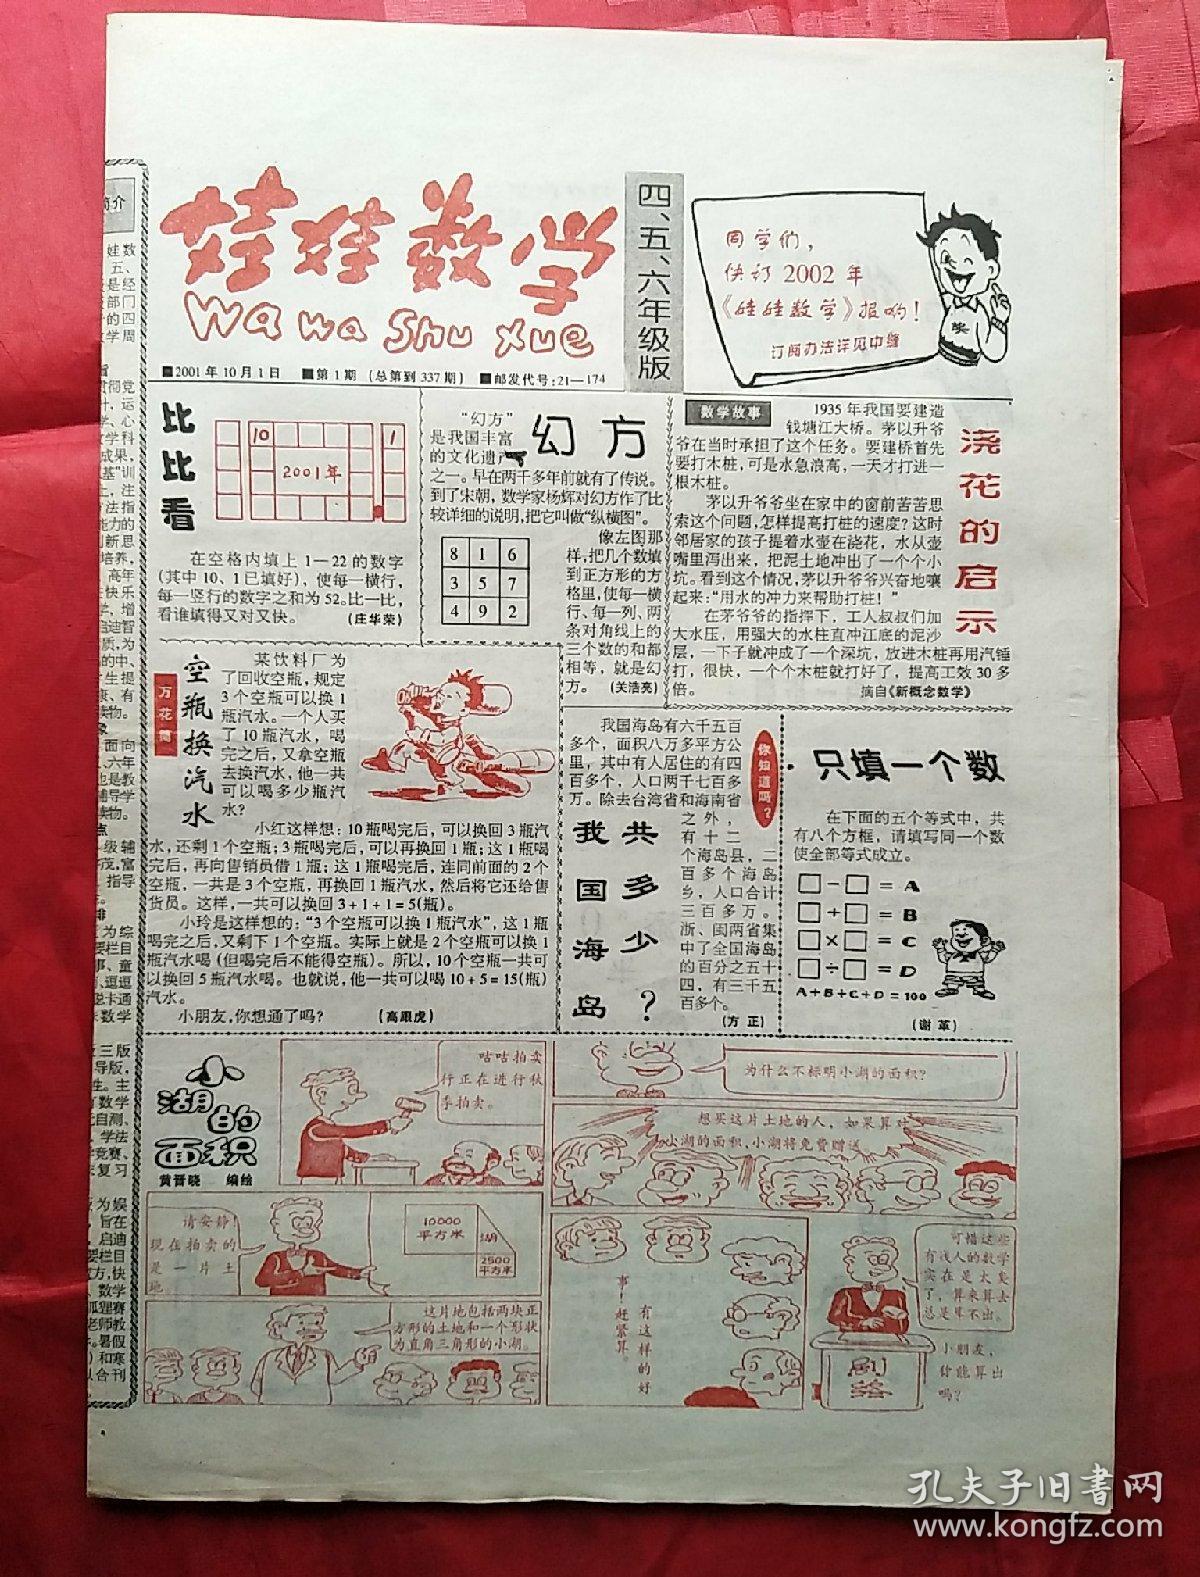 娃娃数学
Wa wa Shu Xue
四、五、六年级版
■2001年10月1日 ■第1期(总第到337期) ■邮发代号:21—174
同学们,
快订2002年
《娃娃数学》报哟!
订阅办法详见中缝
奖
比比看
10
1
2001年
在空格内填上1—22的数字
(其中10、1已填好),使每一横行,
每一竖行的数字之和为52。比一比,
看谁填得又对又快。 (庄华荣)
幻方
“幻方”
是我国丰富
的文化遗产
之一。早在两千多年前就有了传说。
到了宋朝,数学家杨辉对幻方作了比
较详细的说明,把它叫做“纵横图”。
像左图那
样,把几个数填
到正方形的方
格里,使每一横
行、每一列、两
条对角线上的
三个数的和都
相等,就是幻
方。 (关浩亮)
8 1 6
3 5 7
4 9 2
数学故事
浇花的启示
1935年我国要建造
钱塘江大桥。茅以升爷
爷在当时承担了这个任务。要建桥首先
要打木桩,可是水急浪高,一天才打进一
根木桩。
茅以升爷爷坐在家中的窗前苦苦思
索这个问题,怎样提高打桩的速度?这时
邻居家的孩子提着水壶在浇花,水从壶
嘴里泻出来,把泥土地冲出了一个个小
坑。看到这个情况,茅以升爷爷兴奋地嚷
起来:“用水的冲力来帮助打桩!”
在茅爷爷的指挥下,工人叔叔们加
大水压,用强大的水柱直冲江底的泥沙
层,一下子就冲成了一个深坑,放进木桩再用汽锤
打,很快,一个个木桩就打好了,提高工效30多
倍。 摘自《新概念数学》
万花筒
空瓶换汽水
某饮料厂为
了回收空瓶,规定
3个空瓶可以换1
瓶汽水。一个人买
了10瓶汽水,喝
完之后,又拿空瓶
去换汽水,他一共
可以喝多少瓶汽
水?
小红这样想:10瓶喝完后,可以换回3瓶汽
水,还剩1个空瓶;3瓶喝完后,可以再换回1瓶;这1瓶喝
完后,再向售销员借1瓶;这1瓶喝完后,连同前面的2个
空瓶,一共是3个空瓶,再换回1瓶汽水,然后将它还给售
货员。这样,一共可以换回3+1+1=5(瓶)。
小玲是这样想的:“3个空瓶可以换1瓶汽水”,这1瓶
喝完之后,又剩下1个空瓶。实际上就是2个空瓶可以换1
瓶汽水喝(但喝完后不能得空瓶)。所以,10个空瓶一共可
以换回5瓶汽水喝。也就说,他一共可以喝10+5=15(瓶)
汽水。
小朋友,你想通了吗? (高跟虎)
你知道吗?
我国海岛共多少?
我国海岛有六千五百
多个,面积八万多平方公
里,其中有人居住的有四
百多个,人口两千七百多
万。除去台湾省和海南省
之外,
有十二
个海岛县,二
百多个海岛
乡,人口合计
三百多万。
浙、闽两省集
中了全国海岛
的百分之五十
四,有三千五
百多个。
(方正)
只填一个数
在下面的五个等式中,共
有八个方框,请填写同一个数
使全部等式成立。
□-□=A
□+□=B
□×□=C
□÷□=D
A+B+C+D=100
(谢革)
小湖的面积
黄晋晓 编绘
咕咕拍卖
行正在进行秋
季拍卖。
请安静!
现在拍卖的
是一片土
地。
10000
平方米
湖
2500
平方米
这片地包括两块正
方形的土地和一个形状
为直角三角形的小湖。
为什么不标明小湖的面积?
想买这片土地的人,如果算对
小湖的面积,小湖将免费赠送。
有这样的好
事!赶紧算。
可惜这些
有钱人的数学
实在是太臭
了,算来算去
总是算不出。
小朋友,
你能算出
吗?
孔夫子旧书网
www.kongfz.com